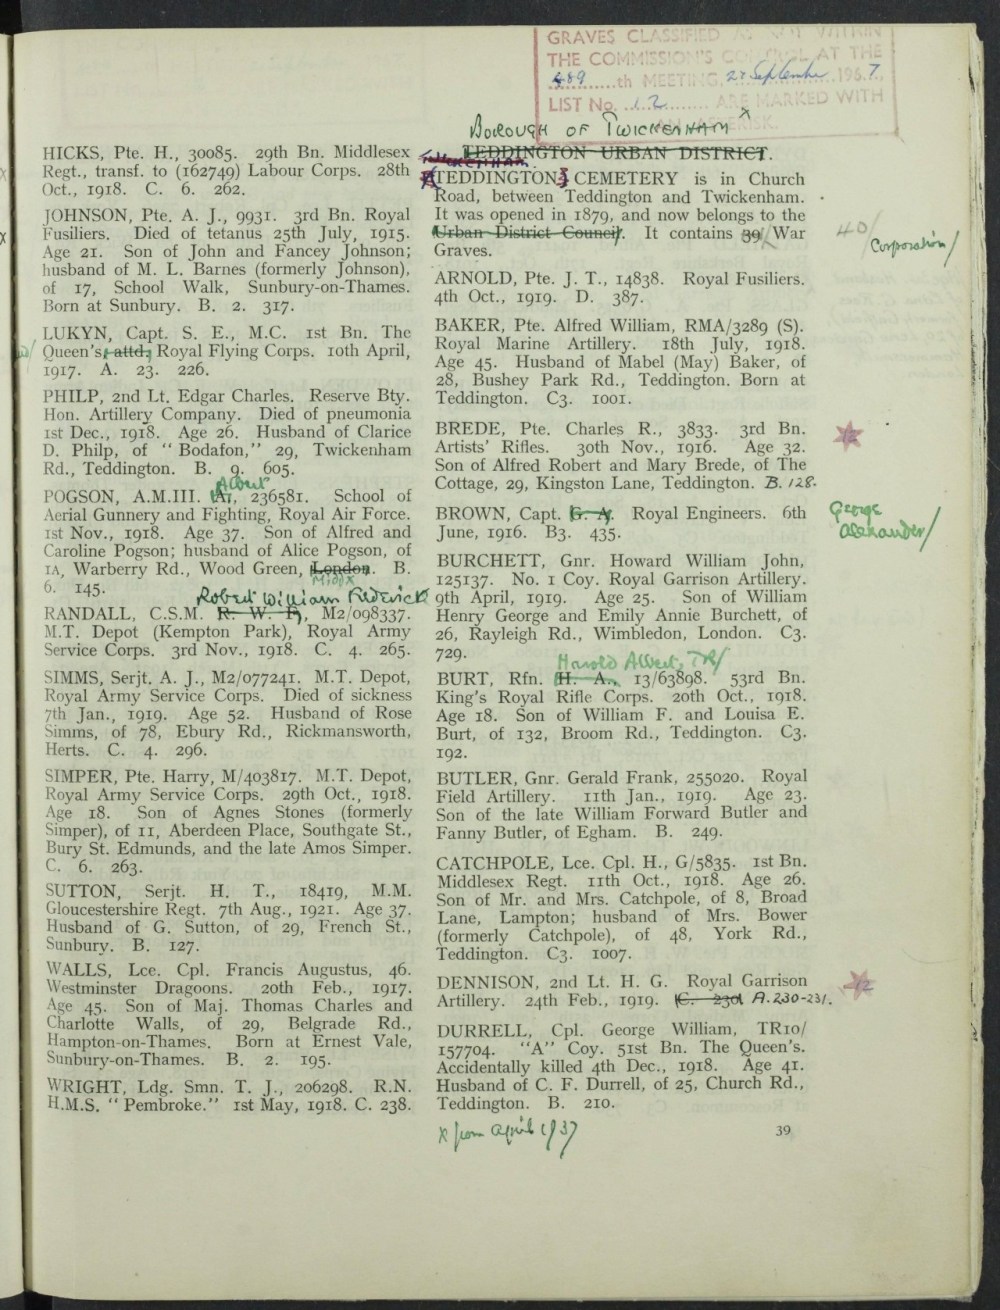 GRAVES CLASSIFIED AS NOT WITHIN
THE COMMISSION'S CONTROL AT THE
489th MEETING, 27 September 1967,
LIST No. 12 ARE MARKED WITH
AN ASTERISK.
HICKS, Pte. H., 30085. 29th Bn. Middlesex
Regt., transf. to (162749) Labour Corps. 28th
Oct., 1918. C. 6. 262.
JOHNSON, Pte. A. J., 9931. 3rd Bn. Royal
Fusiliers. Died of tetanus 25th July, 1915.
Age 21. Son of John and Fancey Johnson;
husband of M. L. Barnes (formerly Johnson),
of 17, School Walk, Sunbury-on-Thames.
Born at Sunbury. B. 2. 317.
LUKYN, Capt. S. E., M.C. 1st Bn. The
Queen's, attd. Royal Flying Corps. 10th April,
1917. A. 23. 226.
PHILP, 2nd Lt. Edgar Charles. Reserve Bty.
Hon. Artillery Company. Died of pneumonia
1st Dec., 1918. Age 26. Husband of Clarice
D. Philp, of "Bodafon," 29, Twickenham
Rd., Teddington. B. 9. 605.
Albert
POGSON, A.M.III. A., 236581. School of
Aerial Gunnery and Fighting, Royal Air Force.
1st Nov., 1918. Age 37. Son of Alfred and
Caroline Pogson; husband of Alice Pogson, of
1A, Warberry Rd., Wood Green, London. B.
Middx
6. 145.
Robert William Frederick
RANDALL, C.S.M. R. W. F., M2/098337.
M.T. Depot (Kempton Park), Royal Army
Service Corps. 3rd Nov., 1918. C. 4. 265.
SIMMS, Serjt. A. J., M2/077241. M.T. Depot,
Royal Army Service Corps. Died of sickness
7th Jan., 1919. Age 52. Husband of Rose
Simms, of 78, Ebury Rd., Rickmansworth,
Herts. C. 4. 296.
SIMPER, Pte. Harry, M/403817. M.T. Depot,
Royal Army Service Corps. 29th Oct., 1918.
Age 18. Son of Agnes Stones (formerly
Simper), of 11, Aberdeen Place, Southgate St.,
Bury St. Edmunds, and the late Amos Simper.
C. 6. 263.
SUTTON, Serjt. H. T., 18419, M.M.
Gloucestershire Regt. 7th Aug., 1921. Age 37.
Husband of G. Sutton, of 29, French St.,
Sunbury. B. 127.
WALLS, Lce. Cpl. Francis Augustus, 46.
Westminster Dragoons. 20th Feb., 1917.
Age 45. Son of Maj. Thomas Charles and
Charlotte Walls, of 29, Belgrade Rd.,
Hampton-on-Thames. Born at Ernest Vale,
Sunbury-on-Thames. B. 2. 195.
WRIGHT, Ldg. Smn. T. J., 206298. R.N.
H.M.S. "Pembroke." 1st May, 1918. C. 238.
BOROUGH OF TWICKENHAM x
TEDDINGTON URBAN DISTRICT.
(TEDDINGTON) CEMETERY is in Church
Road, between Teddington and Twickenham.
It was opened in 1879, and now belongs to the
Urban District Council. It contains 39 War
40/
Corporation/
Graves.
ARNOLD, Pte. J. T., 14838. Royal Fusiliers.
4th Oct., 1919. D. 387.
BAKER, Pte. Alfred William, RMA/3289 (S).
Royal Marine Artillery. 18th July, 1918.
Age 45. Husband of Mabel (May) Baker, of
28, Bushey Park Rd., Teddington. Born at
Teddington. C3. 1001.
BREDE, Pte. Charles R., 3833. 3rd Bn.
12
Artists' Rifles. 30th Nov., 1916. Age 32.
Son of Alfred Robert and Mary Brede, of The
Cottage, 29, Kingston Lane, Teddington. B. 128.
BROWN, Capt. G. A. Royal Engineers. 6th
George
Alexander/
June, 1916. B3. 435.
BURCHETT, Gnr. Howard William John,
125137. No. 1 Coy. Royal Garrison Artillery.
9th April, 1919. Age 25. Son of William
Henry George and Emily Annie Burchett, of
26, Rayleigh Rd., Wimbledon, London. C3.
729.
Harold Albert, TR/
BURT, Rfn. H. A., 13/63898. 53rd Bn.
King's Royal Rifle Corps. 20th Oct., 1918.
Age 18. Son of William F. and Louisa E.
Burt, of 132, Broom Rd., Teddington. C3.
192.
BUTLER, Gnr. Gerald Frank, 255020. Royal
Field Artillery. 11th Jan., 1919. Age 23.
Son of the late William Forward Butler and
Fanny Butler, of Egham. B. 249.
CATCHPOLE, Lce. Cpl. H., G/5835. 1st Bn.
Middlesex Regt. 11th Oct., 1918. Age 26.
Son of Mr. and Mrs. Catchpole, of 8, Broad
Lane, Lampton; husband of Mrs. Bower
(formerly Catchpole), of 48, York Rd.,
Teddington. C3. 1007.
DENNISON, 2nd Lt. H. G. Royal Garrison
12
Artillery. 24th Feb., 1919. C. 230 A.230-231.
DURRELL, Cpl. George William, TR10/
157704. "A" Coy. 51st Bn. The Queen's.
Accidentally killed 4th Dec., 1918. Age 41.
Husband of C. F. Durrell, of 25, Church Rd.,
Teddington. B. 210.
x from April 1937
39